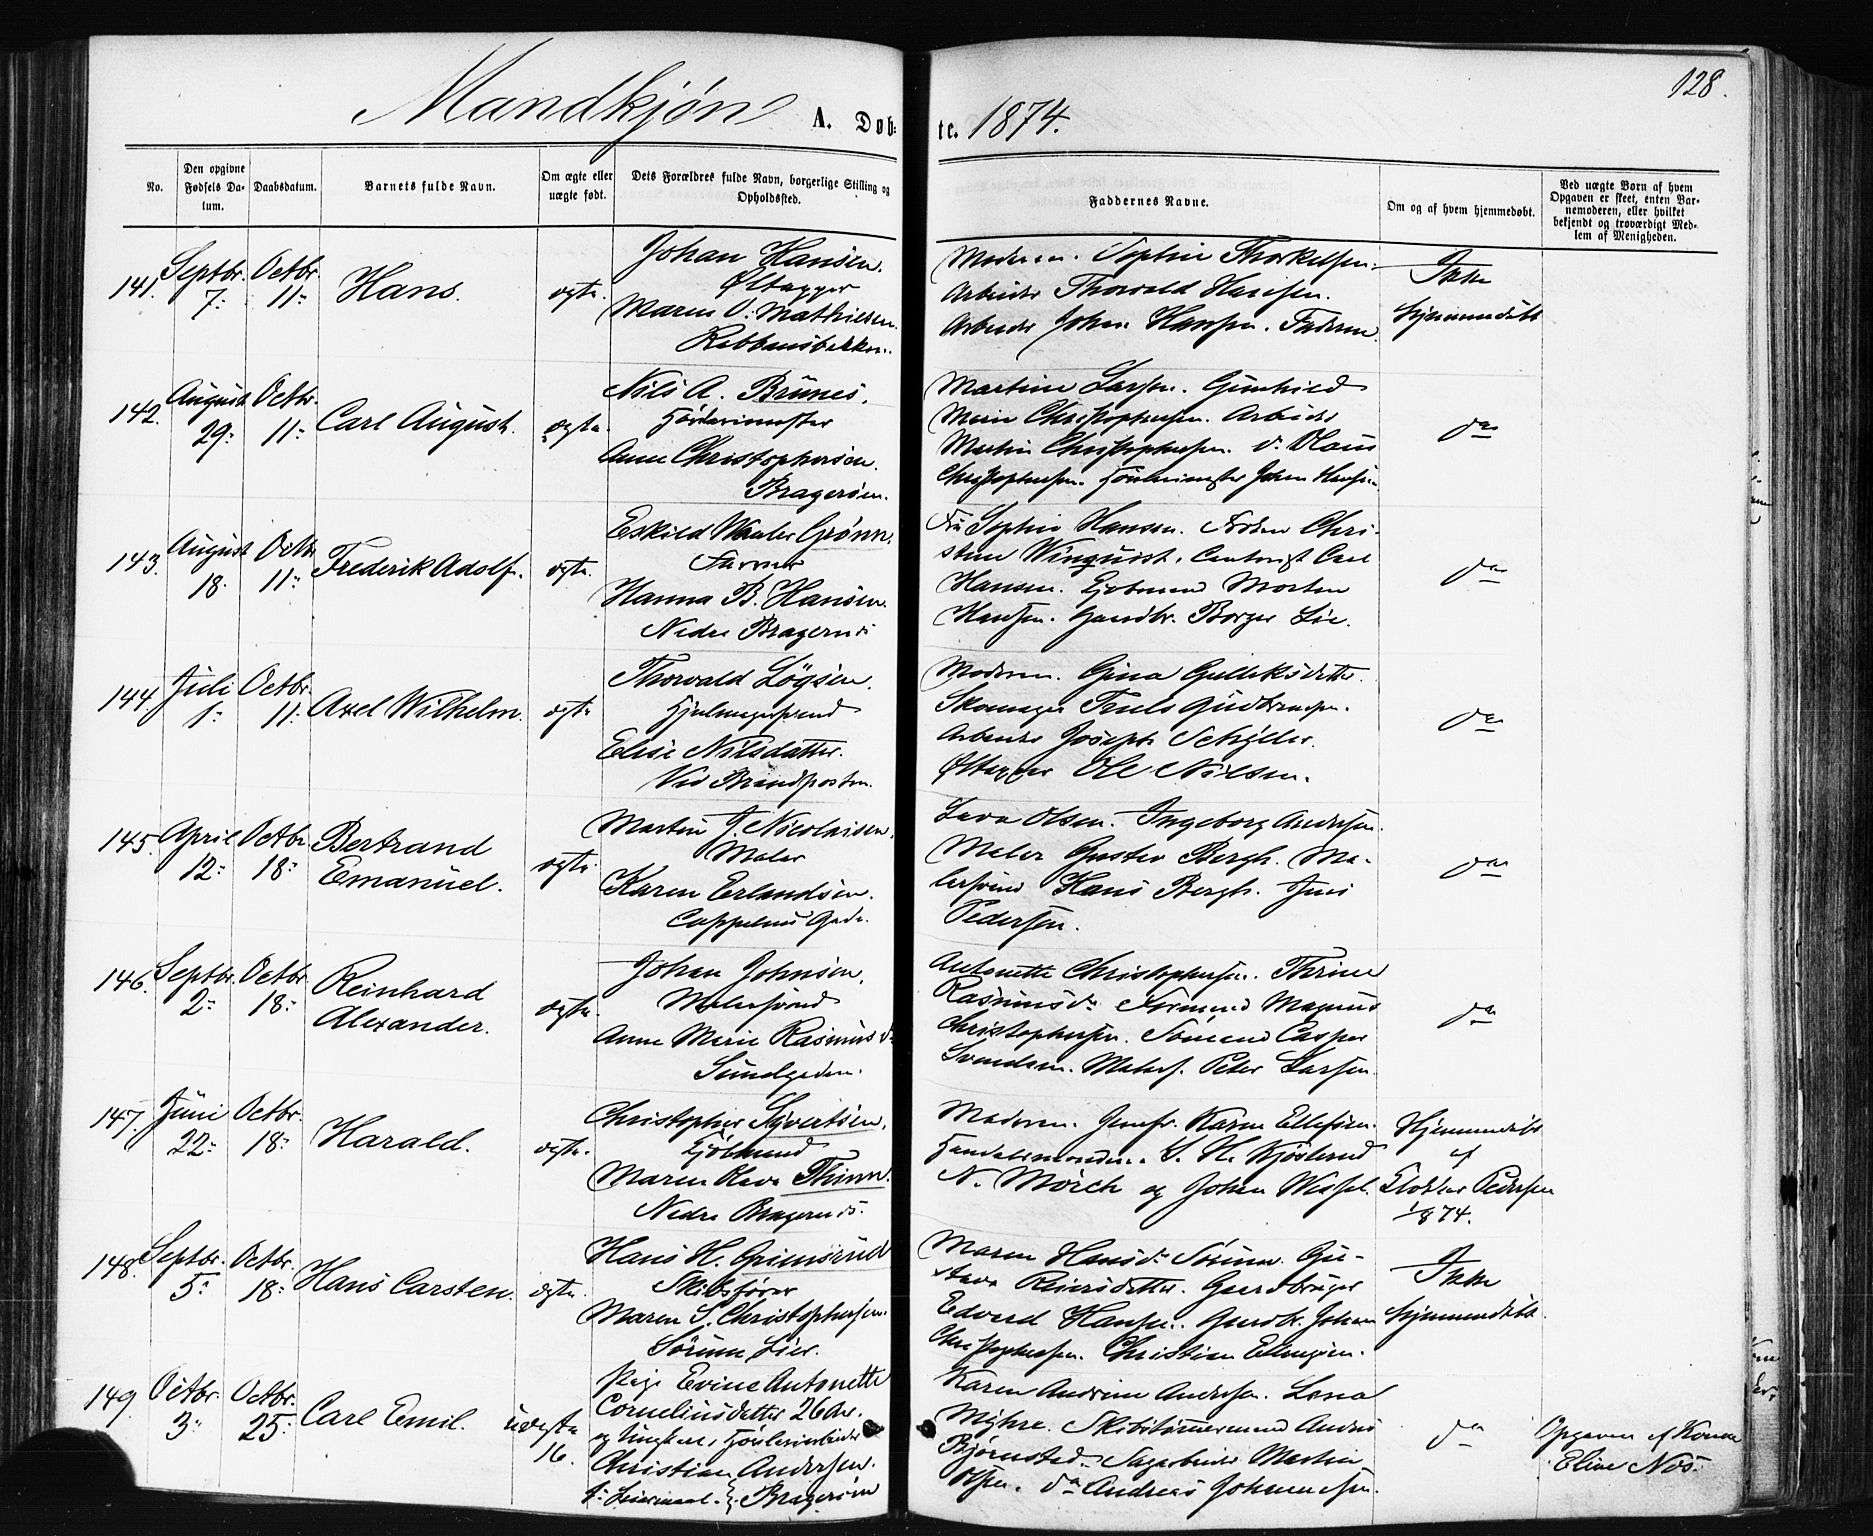 Mandkjøn A. Døb-
te. 1874.
128.
No.
Den opgivne Fødsels Da-tum.
Daabsdatum.
Barnets fulde Navn.
Om ægte eller uægte født.
Dets Forældres fulde Navn, borgerlige Stilling og Opholdssted.
Faddernes Navne.
Om og af hvem hjemmedøbt.
Ved uægte Børn af hvem Opgaven er skeet, enten Bar-nemoderen, eller hvilket bekjendt og troværdigt Med-lem af Menigheden.
141. Septbr. 7: Octbr. 11: Hans. ægte.
Johan Hansen.
Øltapper
Maren O. Mathisen.
Moderen. Sophie Thorkelsen.
Arbeider Thorvald Hansen.
Arbeider Johan Hansen. Faderen.
Ikke
hjemmedøbt
142. August 29: Octbr. 11: Carl August. ægte.
Nils A. Brunes.
Anne Christophersen.
Bragerøen.
Martine Larsen. Gunhild
Marie Christophersen. Arbeider
Martin Christophersen. do Olaus
Christophersen. Johan Hansen
do
143. August 18. Octbr. 11: Frederik Adolf. ægte.
Eskild Waaler Grønn.
Farver
Hanna B. Hansen.
Nedre Bragernes
Fru Sophie Hansen. Frøken Chri-
stine Winquist. Contorist Carl
Hansen. Morten
Hansen. Borger Lie.
do
144. Juli 1: Octbr. 11: Axel Wilhelm. ægte
Thorvald Løgsen.
Hjulmagersvend
Elise Nilsdatter.
Ved Brandposten.
Moderen. Gina Gulliksdatter.
Skomager Truls Gudbrandsen.
Arbeider Joseph
Øltapper Ole Nilsen.
do
145. April 12: Octbr. 18: Bertrand
Emanuel. ægte.
Martin J. Nicolaisen.
Maler
Karen Erlandsen.
Cappelens Gade.
Lava Olsen. Ingeborg Andersen.
Maler Gustav Bergh. Ma-
lersvend Hans Bergh. Jens
Pedersen.
do
146. Septbr. 2: Octbr. 18: Reinhard
Alexander. ægte.
Johan Johnsen.
Malersvend
Anne Marie Rasmusd.
Sundgaden.
Antonette Christophersen. Thrine
Rasmusdr. Magnus
Christophersen. Sømand Casper
Svendsen. Malers. Peter Larsen.
do
147. Juni 22: Octbr. 18: Harald. ægte.
Christopher Syvertsen.
Maren Lava Thinn.
Nedre Bragernes.
Moderen. Jomfr. Karen Ellefsen.
Handelsmændene S. H. Kjøsterud
N. Mörch og Johan Wessel.
Hjemmedøbt
af
Klokker Pedersen
1874.
148. Septbr. 5: Octbr. 18: Hans Carsten. ægte.
Hans H. Grimsrud
Skibsfører
Maren S. Christophersen.
Sørum, Lier.
Maren Hansdr. Sørum. Gu-
stava Reiersdatter. Gaardbruger
Edvard Hansen. Gaardbr. Johan
Christophersen. Christian Ellingsen.
Ikke
hjemmedøbt.
149. Octbr. 3: Octbr. 25: Carl Emil. uægte
16.
Pige Evine Antonette
Corneliusdatter 26 Aar.
og Ungkarl,
Christian Andersen.
Bragerøen
Karen Andrine Andersen. Lena
Myhre. Skibstømmermand Anders
Bjørnstad. Sagarbeider Martin
Olsen. do Andreas Johannesen.
do
Opgaven af Kone
Eline Næs.